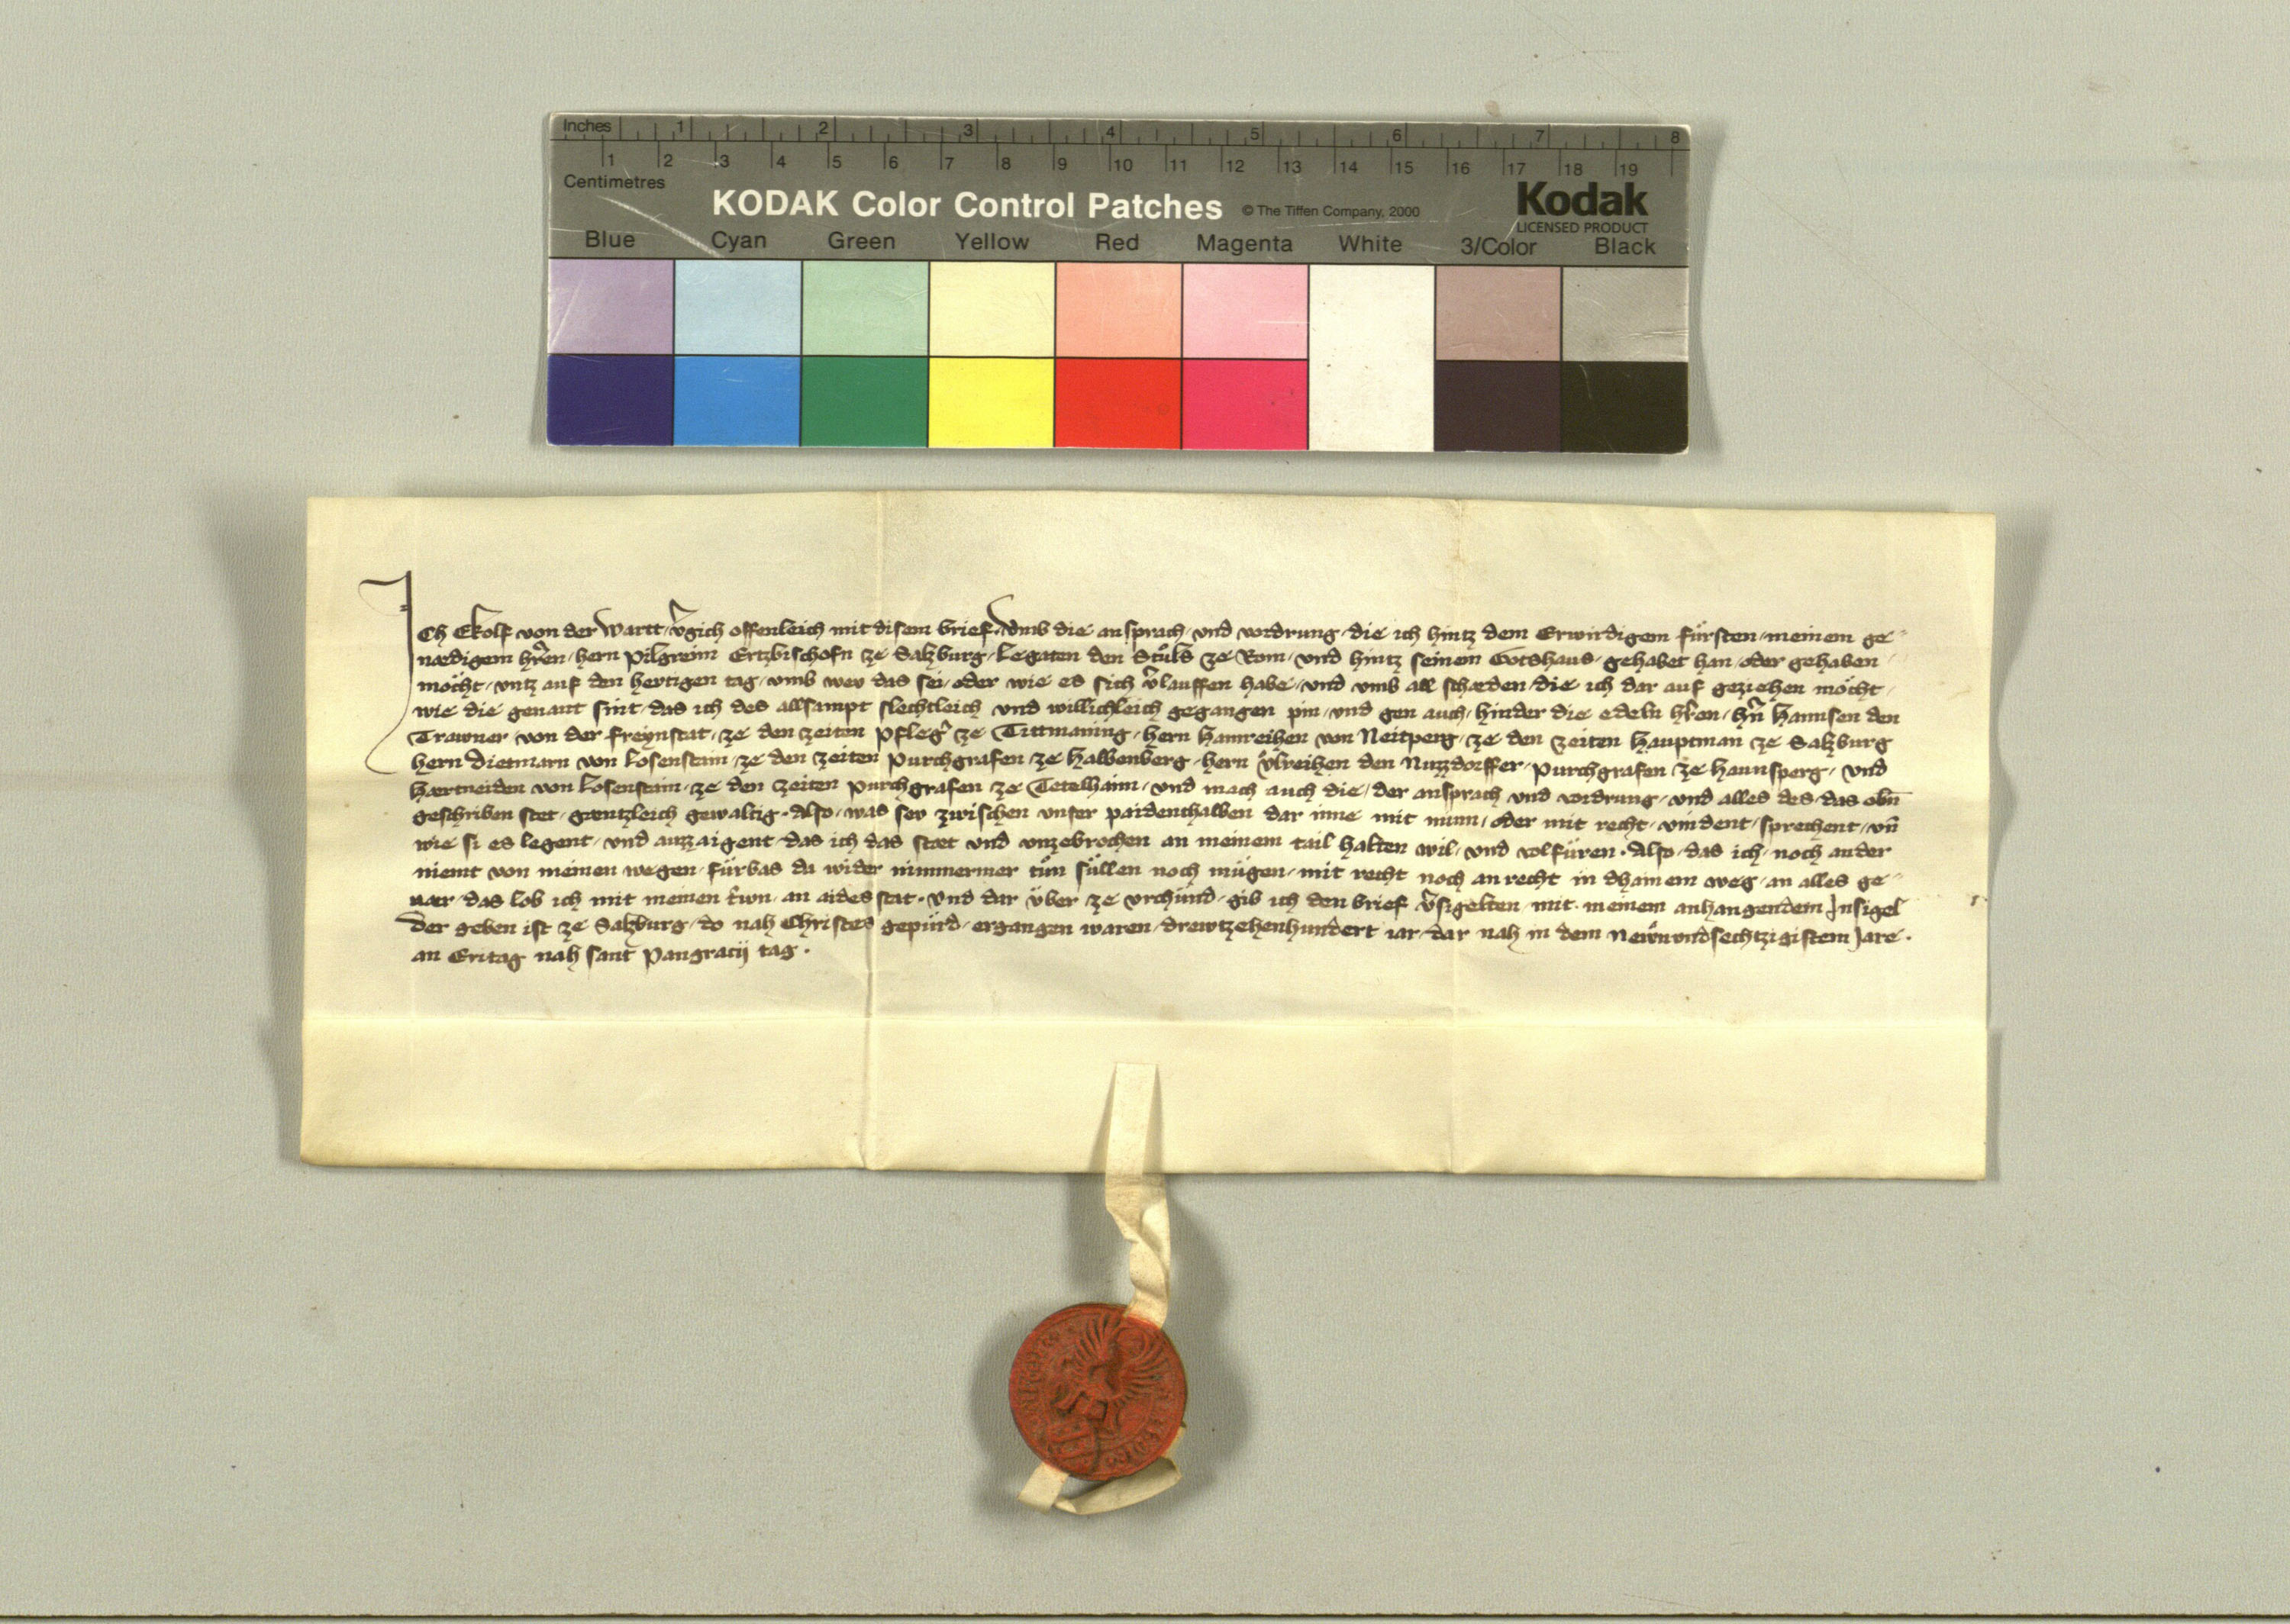 Inches 1 2 3 4 5 6 7 8
1 2 3 4 5 6 7 8 9 10 11 12 13 14 15 16 17 18 19
Centimetres
KODAK Color Control Patches © The Tiffen Company, 2000 Kodak
LICENSED PRODUCT
Blue Cyan Green Yellow Red Magenta White 3/Color Black
Ich Ekolf von der Wartt, v̂gich offenleich mit disem brief, Vmb die ansprach, vnd vordrung, die ich hintz dem Erwirdigem fürsten, meinem ge-
nædigem hr̂en, hern Pilgreim Ertzbischofn ze Salzburg, Legaten den Stůls ze Rom, vnd hintz seinem Gotshaus, gehabet han, oder gehaben
möcht, vntz auf den hertigen tag, vmb wev das sei, oder wie es sich v̂lauffen habe, vnd vmb all schæden, die ich dar auf geziehen möcht,
wie die genant sint, das ich des allsampt slechtleich vnd willichleich gegangen pin, vnd gen auch, hinder die edeln hr̂en, hn̂ Hannsen den
Trawner von der Freynstat, ze den zeiten Pfleg̑ ze Tittmaning, hern Hainreihen von Neitperg, ze den zeiten Hauptman ze Salzburg
hern Dietmarn von Losenstain, ze den zeiten Purchgrafen ze Halbenberg, hern V̊lreihen den Nuzzdorffer, Purchgrafen ze Haunsperg, vnd
Hærtneiden von Losenstain, ze den zeiten purchgrafen ze Tetelhaim, vnd mach auch die, der ansprach vnd vordrung, vnd alles des, das obn̄
geschriben stet, gæntzleich gewaltig. Also, was sev zwischen vnser paidenthalben dar inne mit minn, oder mit recht, vindent, sprechent, vn̄
wie si es legent, vnd auzzaigent, das ich das stæt vnd vnzebrochen an meinem tail halten wil, vnd volfüren. Also, das ich, noch ander
niemt von meinen wegen, fürbas da wider nimmermer tůn süllen noch mügen, mit recht noch an recht in dhainem weg, an alles ge-
uær, das lob ich mit meinen tr̂wn, an aides stat. Vnd dar über ze vrchünd, gib ich den brief v̂sigelten, mit meinem anhangendem Insigel
Der geben ist ze Salzburg, do nah Christes gepürd, ergangen waren, drewtzehenhundert iar, dar nah in dem Newnvndsechtzigistem Jare.
an Eritag nah sant Pangracij tag.